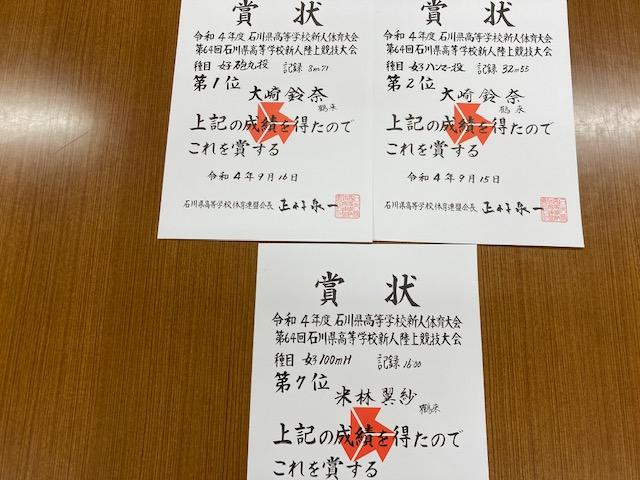 賞 状
令和4年度 石川県高等学校新人体育大会
第64回石川県高等学校新人陸上競技大会
種目 女子砲丸投 記録 8m71
第1位
大崎鈴奈
鶴来
上記の成績を得たので
これを賞する
令和4年9月16日
石川県高等学校体育連盟会長
賞 状
令和4年度 石川県高等学校新人体育大会
第64回石川県高等学校新人陸上競技大会
種目 女子ハンマー投 記録 32m55
第2位
大崎鈴奈
鶴来
上記の成績を得たので
これを賞する
令和4年9月15日
石川県高等学校体育連盟会長
賞 状
令和4年度 石川県高等学校新人体育大会
第64回石川県高等学校新人陸上競技大会
種目 女子100mH 記録 16"00
第7位
米林翼紗
鶴来
上記の成績を得たので
これを賞する